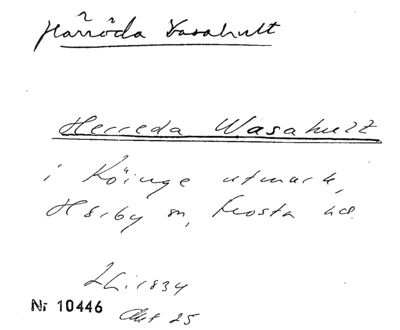 Härröda Vasahult
Herreda Wasahult
i Köinge utmark,
Hörby sn, Frosta hd.
LC: 1834
Nr 10446 Akt 25